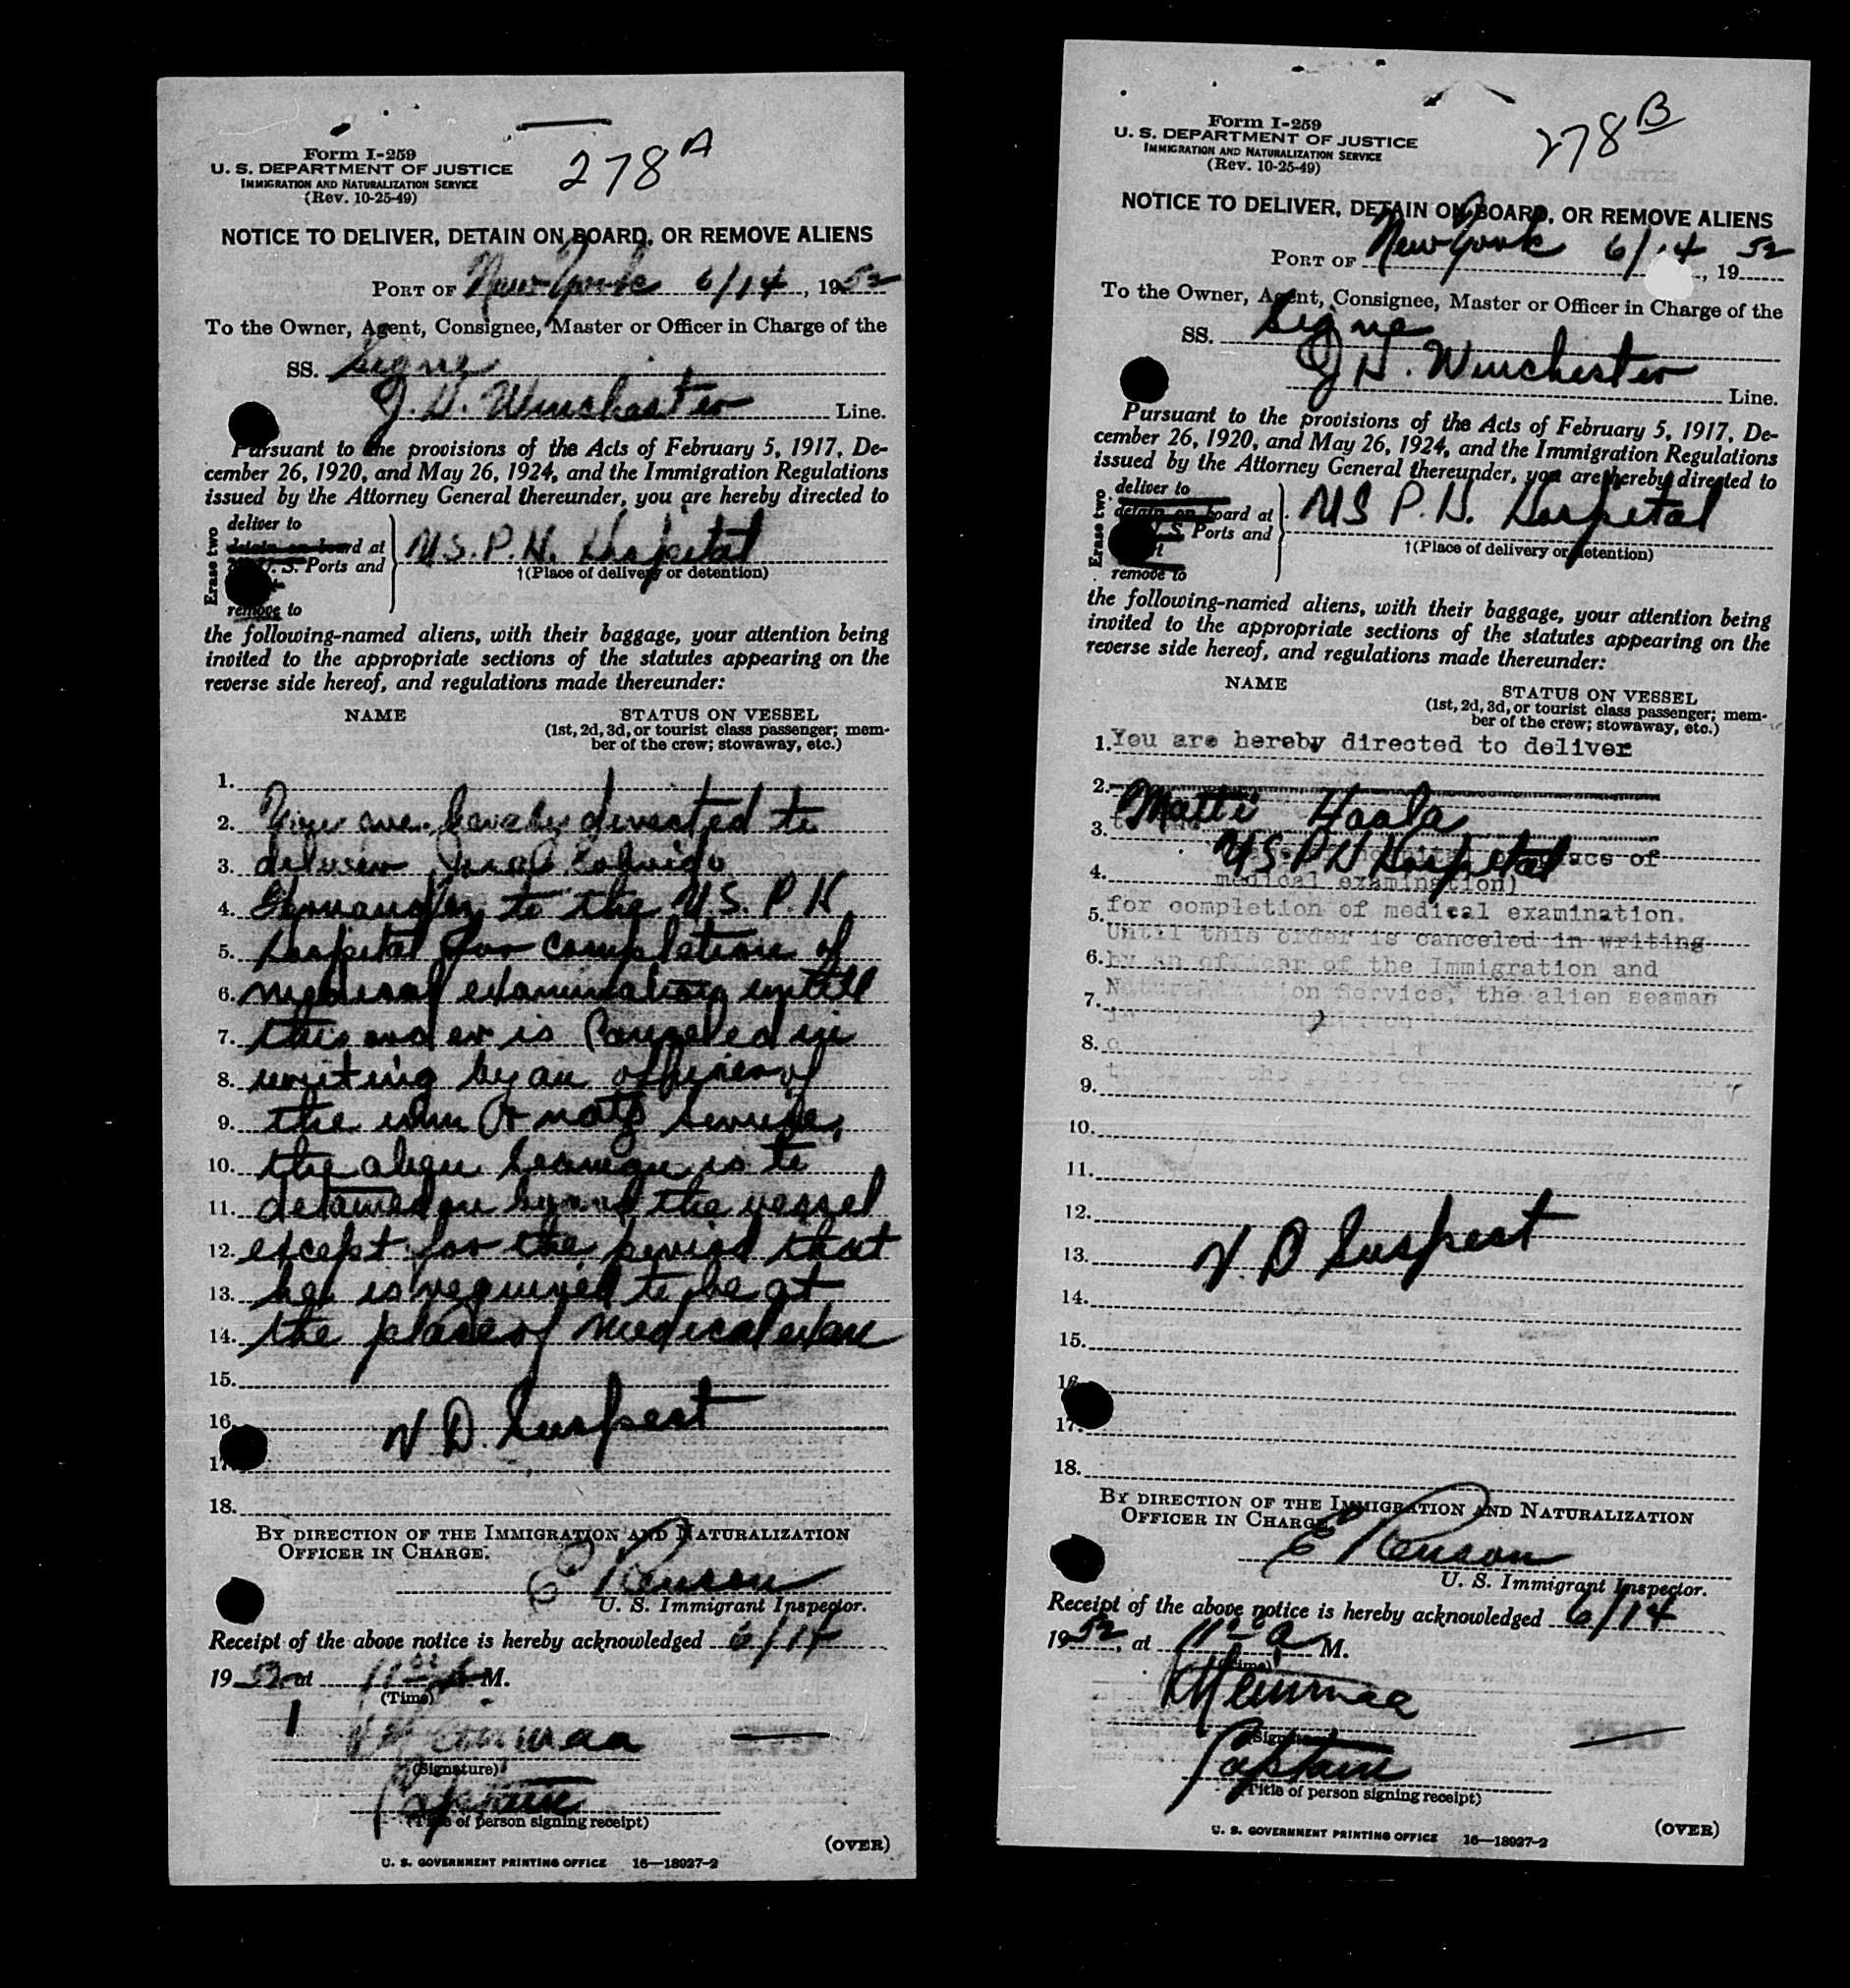 Form I-259
U. S. DEPARTMENT OF JUSTICE
IMMIGRATION AND NATURALIZATION SERVICE
(Rev. 10-25-49)
278 A
NOTICE TO DELIVER, DETAIN ON BOARD, OR REMOVE ALIENS
PORT OF New York 6/14, 1952
To the Owner, Agent, Consignee, Master or Officer in Charge of the
SS. Signe
J. H. Winchester Line.
Pursuant to the provisions of the Acts of February 5, 1917, De-
cember 26, 1920, and May 26, 1924, and the Immigration Regulations
issued by the Attorney General thereunder, you are hereby directed to
Erase two
deliver to
detain on board at
U. S. Ports and
remove to
U.S.P.H. Hospital
†(Place of delivery or detention)
the following-named aliens, with their baggage, your attention being
invited to the appropriate sections of the statutes appearing on the
reverse side hereof, and regulations made thereunder:
NAME
STATUS ON VESSEL
(1st, 2d, 3d, or tourist class passenger; mem-
ber of the crew; stowaway, etc.)
1.
2. You are hereby directed to
3. deliver
4. to the U.S. P. H
5. hospital for completion of
6. medical examination untill
7. this order is canceled in
8. writing by an officer of
9. the imm & natz service,
10. the alien seaman is to
11. detained on board the vessel
12. except for the period that
13. he is required to be at
14. the place of medical exam
15.
16. V. D. Suspect
17.
18.
BY DIRECTION OF THE IMMIGRATION AND NATURALIZATION
OFFICER IN CHARGE.
E
U. S. Immigrant Inspector.
Receipt of the above notice is hereby acknowledged 6/14
1952 at 11 M.
(Time)
(Signature)
Captain
(Title of person signing receipt)
(OVER)
U. S. GOVERNMENT PRINTING OFFICE 16—18927-2
Form I-259
U. S. DEPARTMENT OF JUSTICE
IMMIGRATION AND NATURALIZATION SERVICE
(Rev. 10-25-49)
278 B
NOTICE TO DELIVER, DETAIN ON BOARD, OR REMOVE ALIENS
PORT OF New York 6/14, 1952
To the Owner, Agent, Consignee, Master or Officer in Charge of the
SS. Signe
J H. Winchester
Line.
Pursuant to the provisions of the Acts of February 5, 1917, De-
cember 26, 1920, and May 26, 1924, and the Immigration Regulations
issued by the Attorney General thereunder, you are hereby directed to
Erase two
deliver to
detain on board at
S. Ports and
remove to
US P.H. Hospital
†(Place of delivery or detention)
the following-named aliens, with their baggage, your attention being
invited to the appropriate sections of the statutes appearing on the
reverse side hereof, and regulations made thereunder:
NAME
STATUS ON VESSEL
(1st, 2d, 3d, or tourist class passenger; mem-
ber of the crew; stowaway, etc.)
1. You are hereby directed to deliver
2. Matti Haala
3. US P H Hospital place of
4. medical examination)
5. for completion of medical examination.
Until this order is canceled in writing
6. by an officer of the Immigration and
7. Naturalization Service, the alien seaman
8.
9.
10.
11.
12.
13. V. D Suspect
14.
15.
16.
17.
18.
BY DIRECTION OF THE IMMIGRATION AND NATURALIZATION
OFFICER IN CHARGE.
E
U. S. Immigrant Inspector.
Receipt of the above notice is hereby acknowledged 6/14
1952, at 11 a M.
(Time)
(Signature)
Captain
(Title of person signing receipt)
(OVER)
U. S. GOVERNMENT PRINTING OFFICE 16—18927-2